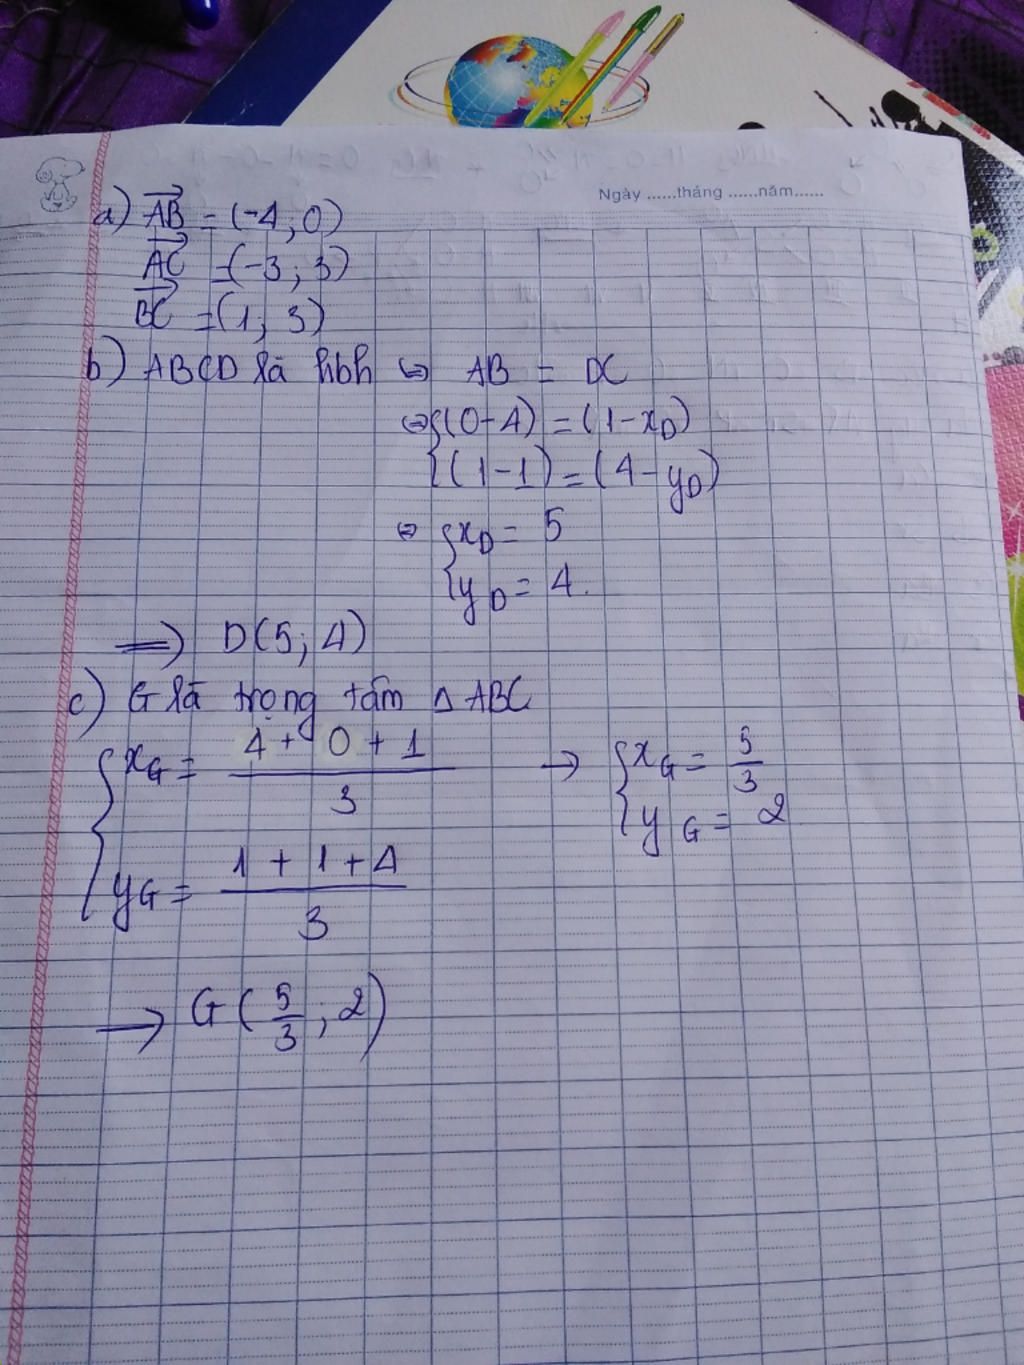 Ngày ......tháng ......năm......
a) AB = (-4; 0)
AC = (-3; 3)
BC = (1; 3)
b) ABCD là hbh ⇔ AB = DC
⇔ { (0-4) = (1-xD)
(1-1) = (4-yD)
⇔ { xD = 5
yD = 4.
⟹ D(5; 4)
c) G là trọng tâm Δ ABC
{ xG = (4 + 0 + 1)/3 → { xG = 5/3
yG = 2
yG = (1 + 1 + 4)/3
→ G(5/3; 2)